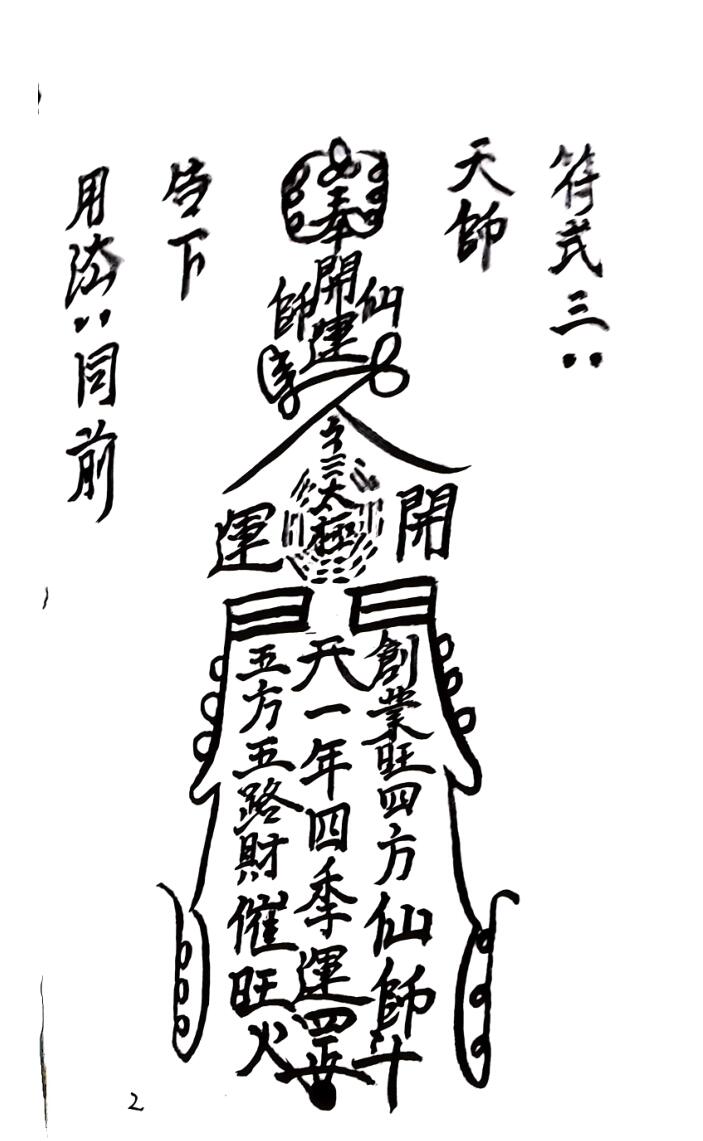 符式三：
天師
奉
開運
仙
師
太極
開
運
創業旺四方仙師斗
天一年四季運罡
五方五路財催旺火
告下
用法：同前
2